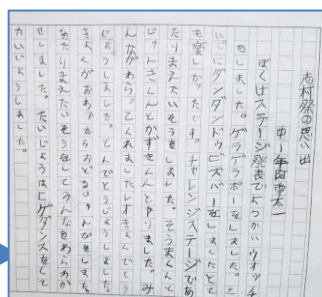 志村祭の思い出
中一年 四 市太一
ぼくはステージ発表でようかいウォッチ
をしました。ゲラゲラポーをしました。さ
いごにダンダンドゥビズバーをしましたとて
も楽しかったです。チャレンジステージであ
たりまえたいそうをしました。そうまくんと
じゅんきくんとかずきくんとやりました。み
んながわらってくれましたレオきょくでとう
じょうしました。とんでとうじょうしました。
きょくがおわったらおどるじゅんびをしました。
あたりまえたいそうをしてみんなをわらわか
せしました。たいじょうはヒゲダンスをして
たいじょうしました。